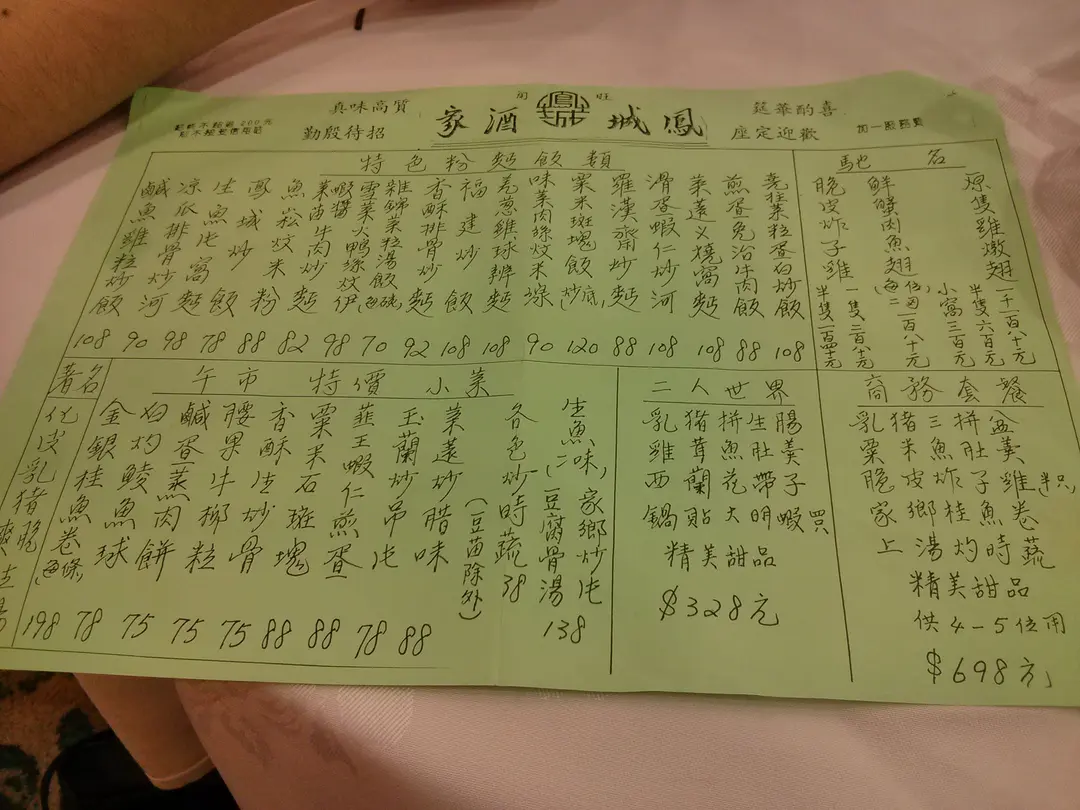 旺角
鳳城酒家
質高味真
招待殷勤
喜酌華筵
歡迎定座
加一服務費
馳名
原隻雞燉翅 一千一百八十元
半隻六百元
小窩三百元
鮮蟹肉魚翅(每位) 二百八十元
脆皮炸子雞 一隻二百八十元
半隻一百四十元
特色粉麵飯類
堯柱菜粒蛋白炒飯 108
煎蛋免治牛肉飯 88
菜薳叉燒窩麵 108
滑蛋蝦仁炒河 108
羅漢齋炒麵 88
粟米斑塊飯(炒底) 120
味菜肉絲炆米線 90
羌葱雞球辦麵 108
福建炒飯 108
香酥排骨炒麵 92
雜錦菜粒湯飯(每碗) 70
雪菜火鴨絲炆伊 98
蝦醬菜苗牛肉炒麵 82
魚崧炆米粉 88
鳳城炒飯 78
生魚片窩麵 98
凉瓜排骨炒河 90
鹹魚雞粒炒飯 108
商務套餐
乳猪三拼盆
粟米魚肚羹
脆皮炸子雞半只
家鄉桂魚卷
上湯灼時蔬
精美甜品
供4-5位用
$698元
二人世界
乳猪拼生腸
雞茸魚肚羹
西蘭花帶子
鍋貼大明蝦 四只
精美甜品
$328元
午市特價小菜
生魚二味(家鄉炒片 豆腐骨湯) 138
各色炒時蔬(豆苗除外) 38
菜薳炒腊味 88
玉蘭炒吊片 78
韮王蝦仁煎蛋 88
粟米石斑塊 88
香酥生炒骨 75
腰果牛柳粒 75
鹹蛋蒸肉餅 75
白灼鯪魚球 78
金銀桂魚卷(每條) 198
著名
化皮乳猪